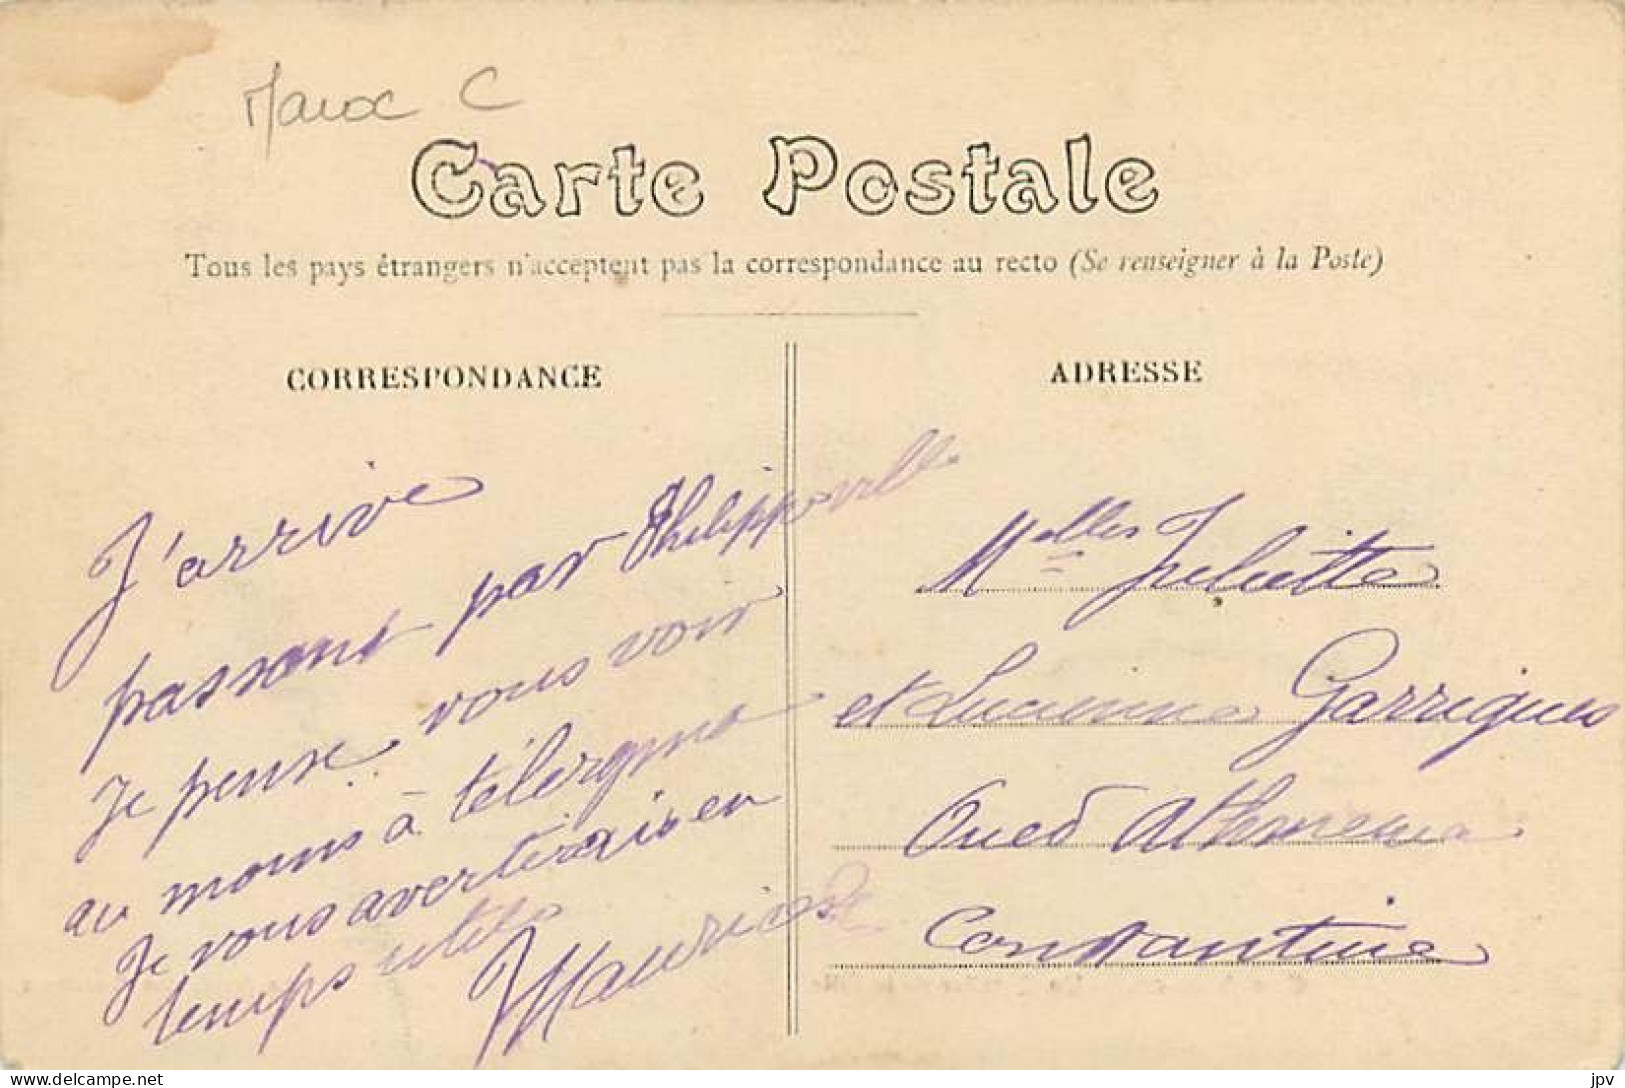 Maroc C
Carte Postale
Tous les pays étrangers n'acceptent pas la correspondance au recto (Se renseigner à la Poste)
CORRESPONDANCE
J'arrive
passant par Philippeville
Je pense vous voir
au moins à télergma
Je vous avertirais en
temps utile
Maurice
ADRESSE
Melles Juliette
et Lucienne Garrigues
Oued Athmenia
Constantine
jpv